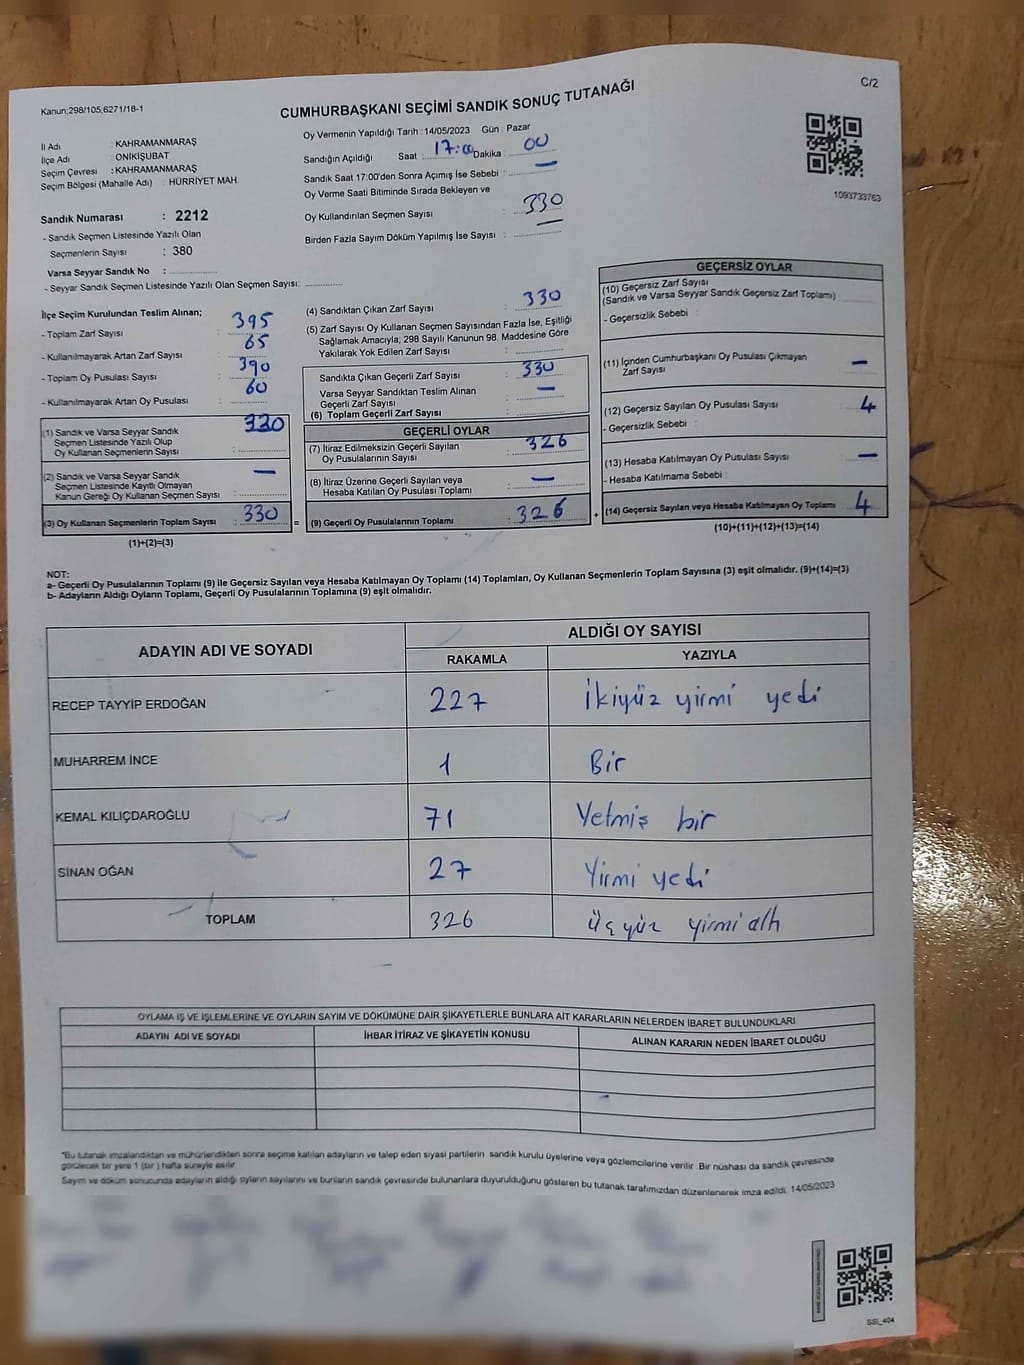 C/2
Kanun;298/105,6271/18-1
CUMHURBAŞKANI SEÇİMİ SANDIK SONUÇ TUTANAĞI
İl Adı : KAHRAMANMARAŞ
İlçe Adı : ONİKİŞUBAT
Seçim Çevresi : KAHRAMANMARAŞ
Seçim Bölgesi (Mahalle Adı) : HÜRRİYET MAH.
Sandık Numarası : 2212
- Sandık Seçmen Listesinde Yazılı Olan
Seçmenlerin Sayısı : 380
Varsa Seyyar Sandık No :
- Seyyar Sandık Seçmen Listesinde Yazılı Olan Seçmen Sayısı:
Oy Vermenin Yapıldığı Tarih : 14/05/2023 Gün : Pazar
Sandığın Açıldığı Saat : 17:00 Dakika : 00
Sandık Saat 17:00'den Sonra Açımış İse Sebebi : —
Oy Verme Saati Bitiminde Sırada Bekleyen ve
Oy Kullandırılan Seçmen Sayısı : 330
Birden Fazla Sayım Döküm Yapılmış İse Sayısı : —
1093733763
İlçe Seçim Kurulundan Teslim Alınan;
- Toplam Zarf Sayısı : 395
- Kullanılmayarak Artan Zarf Sayısı : 65
- Toplam Oy Pusulası Sayısı : 390
- Kullanılmayarak Artan Oy Pusulası : 60
(1) Sandık ve Varsa Seyyar Sandık 330
Seçmen Listesinde Yazılı Olup
Oy Kullanan Seçmenlerin Sayısı :
(2) Sandık ve Varsa Seyyar Sandık —
Seçmen Listesinde Kayıtlı Olmayan
Kanun Gereği Oy Kullanan Seçmen Sayısı :
(3) Oy Kullanan Seçmenlerin Toplam Sayısı : 330 =
(1)+(2)=(3)
(4) Sandıktan Çıkan Zarf Sayısı : 330
(5) Zarf Sayısı Oy Kullanan Seçmen Sayısından Fazla İse, Eşitliği
Sağlamak Amacıyla; 298 Sayılı Kanunun 98. Maddesine Göre
Yakılarak Yok Edilen Zarf Sayısı :
Sandıkta Çıkan Geçerli Zarf Sayısı : 330
Varsa Seyyar Sandıktan Teslim Alınan : —
Geçerli Zarf Sayısı
(6) Toplam Geçerli Zarf Sayısı :
GEÇERLİ OYLAR
(7) İtiraz Edilmeksizin Geçerli Sayılan 326
Oy Pusulalarının Sayısı :
(8) İtiraz Üzerine Geçerli Sayılan veya : —
Hesaba Katılan Oy Pusulası Toplamı
(9) Geçerli Oy Pusulalarının Toplamı : 326 +
GEÇERSİZ OYLAR
(10) Geçersiz Zarf Sayısı
(Sandık ve Varsa Seyyar Sandık Geçersiz Zarf Toplamı)
- Geçersizlik Sebebi :
(11) İçinden Cumhurbaşkanı Oy Pusulası Çıkmayan —
Zarf Sayısı
(12) Geçersiz Sayılan Oy Pusulası Sayısı 4
- Geçersizlik Sebebi :
(13) Hesaba Katılmayan Oy Pusulası Sayısı —
- Hesaba Katılmama Sebebi :
(14) Geçersiz Sayılan veya Hesaba Katılmayan Oy Toplamı 4
(10)+(11)+(12)+(13)=(14)
NOT:
a- Geçerli Oy Pusulalarının Toplamı (9) ile Geçersiz Sayılan veya Hesaba Katılmayan Oy Toplamı (14) Toplamları, Oy Kullanan Seçmenlerin Toplam Sayısına (3) eşit olmalıdır. (9)+(14)=(3)
b- Adayların Aldığı Oyların Toplamı, Geçerli Oy Pusulalarının Toplamına (9) eşit olmalıdır.
ADAYIN ADI VE SOYADI ALDIĞI OY SAYISI
RAKAMLA YAZIYLA
RECEP TAYYİP ERDOĞAN 227 İkiyüz yirmi yedi
MUHARREM İNCE 1 Bir
KEMAL KILIÇDAROĞLU 71 Yetmiş bir
SİNAN OĞAN 27 Yirmi yedi
TOPLAM 326 üçyüz yirmi altı
OYLAMA İŞ VE İŞLEMLERİNE VE OYLARIN SAYIM VE DÖKÜMÜNE DAİR ŞİKAYETLERLE BUNLARA AİT KARARLARIN NELERDEN İBARET BULUNDUKLARI
ADAYIN ADI VE SOYADI İHBAR İTİRAZ VE ŞİKAYETİN KONUSU ALINAN KARARIN NEDEN İBARET OLDUĞU
"Bu tutanak imzalandıktan ve mühürlendikten sonra seçime katılan adayların ve talep eden siyasi partilerin sandık kurulu üyelerine veya gözlemcilerine verilir. Bir nüshası da sandık çevresinde
görülecek bir yere 1 (bir) hafta süreyle asılır.
Sayım ve döküm sonucunda adayların aldığı oyların sayılarını ve bunların sandık çevresinde bulunanlara duyurulduğunu gösteren bu tutanak tarafımızdan düzenlenerek imza edildi. 14/05/2023
SSI_404